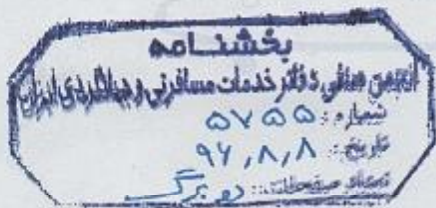 بخشنامه
انجمن صنفی دفاتر خدمات مسافرتی و جهانگردی ایران
شماره: ۵۷۵۵
تاریخ: ۹۶,۸,۸
تعداد صفحات: دو برگ